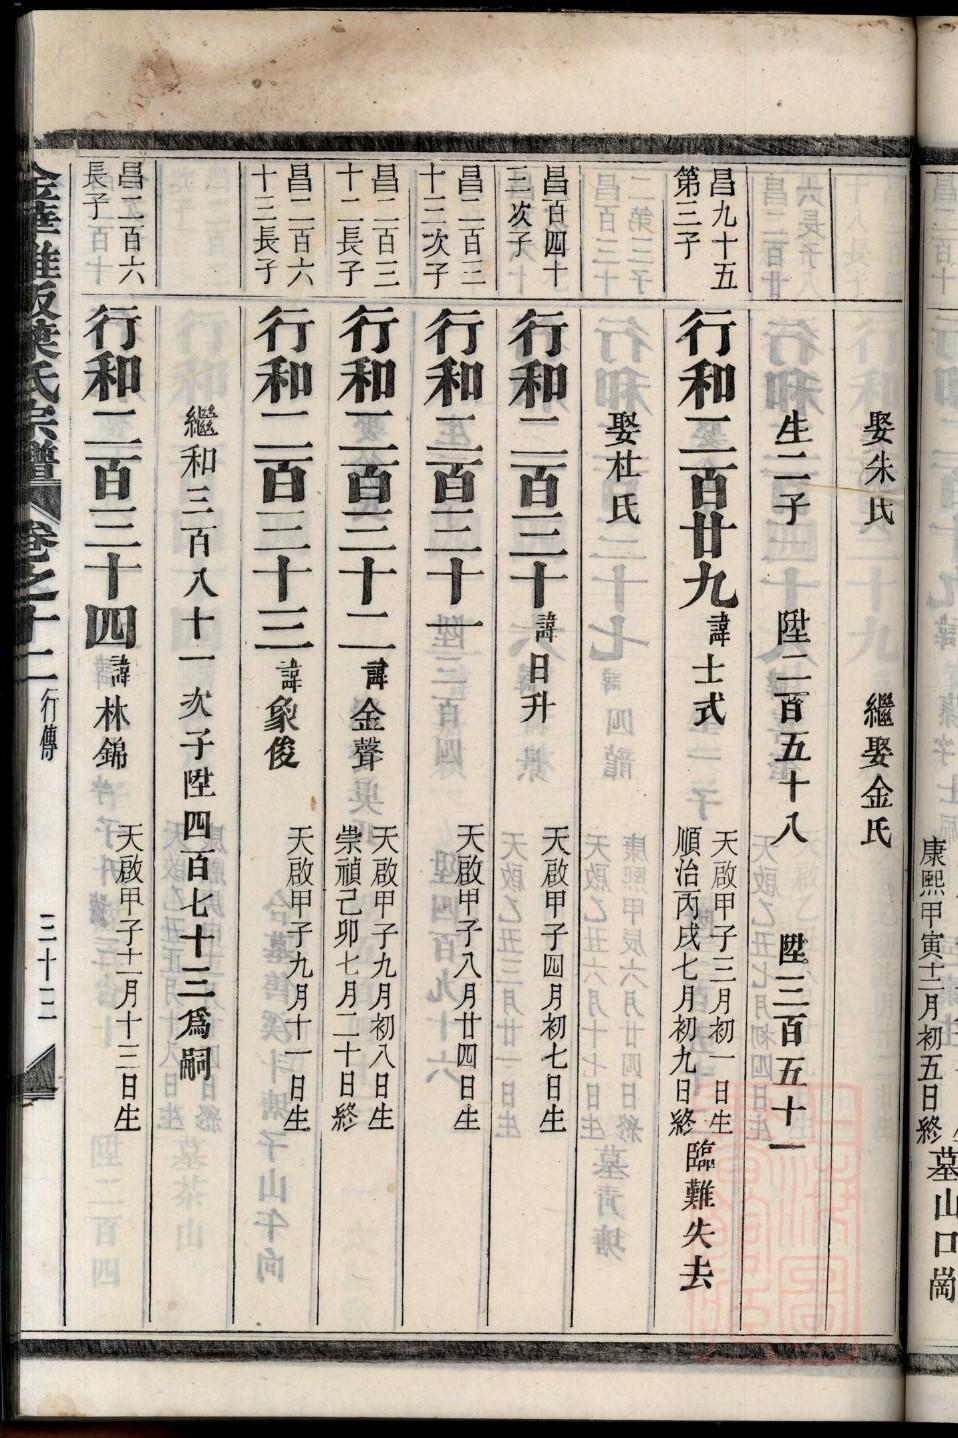 娶朱氏 繼娶金氏
生二子 陞二百五十八 陞三百五十一
昌九十五
第三子
行和二百廿九 諱士式
天啟甲子三月初一日生
順治丙戌七月初九日終
臨難失去
娶杜氏
昌百四十
三次子
行和二百三十 諱日升
天啟甲子四月初七日生
昌二百三
十三次子
行和二百三十一
天啟甲子八月廿四日生
昌二百三
十二長子
行和二百三十二 諱金聲
天啟甲子九月初八日生
崇禎己卯七月二十日終
昌二百六
十三長子
行和二百三十三 諱象俊
天啟甲子九月十一日生
繼和三百八十一次子陞四百七十三為嗣
昌二百六
長子百十
行和二百三十四 諱林錦
天啟甲子十一月十三日生
葉氏宗譜 卷之十二 行傳 三十三
康熙甲寅十二月初五日終
墓山口崗